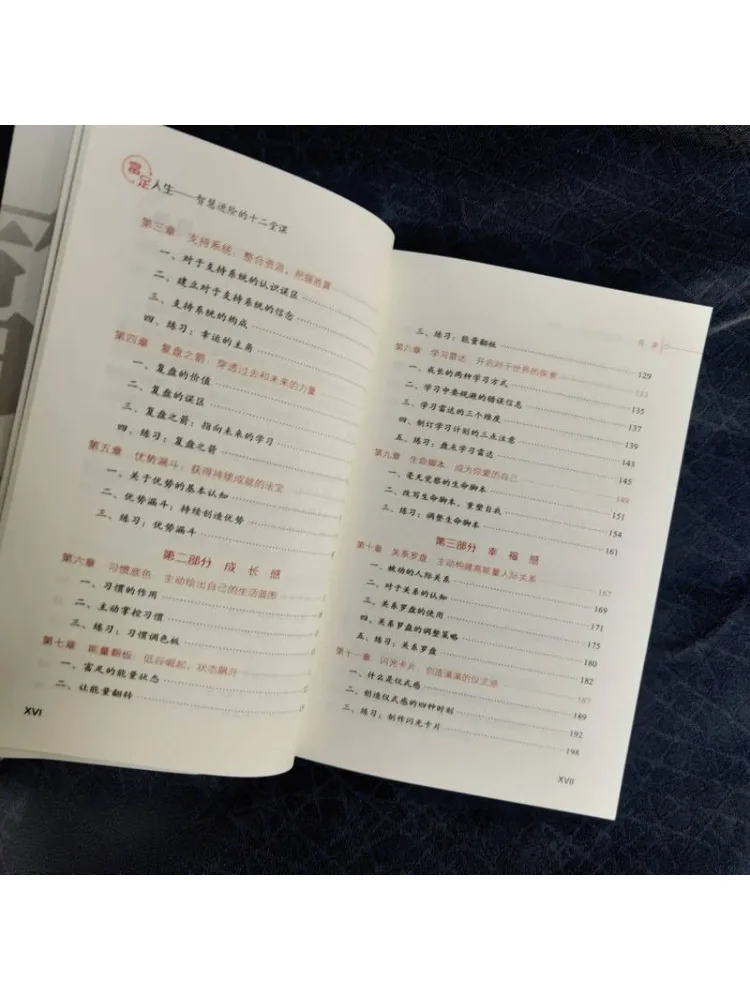 富足人生——智慧进阶的十二堂课
第三章 支持系统：整合资源，把握质量
一、对于支持系统的认识误区
二、建立对于支持系统的信念
三、支持系统的构成
四、练习：幸运的主角
第四章 复盘之箭：穿透过去和未来的力量
一、复盘的价值
二、复盘的误区
三、复盘之箭：指向未来的学习
四、练习：复盘之箭
第五章 优势漏斗：获得持续成就的法宝
一、关于优势的基本认知
二、优势漏斗：持续创造优势
三、练习：优势漏斗
第二部分 成长感
第六章 习惯底色：主动绘出自己的生活蓝图
一、习惯的作用
二、主动掌控习惯
三、练习：习惯调色板
第七章 能量翻板：低谷崛起，状态飙升
一、富足的能量状态
二、让能量翻转
XVI
目录
三、练习：能量翻板 129
第八章 学习雷达：开启对于世界的探索 133
一、成长的两种学习方式 135
二、学习中要规避的错误信息 137
三、学习雷达的三个维度 139
四、制订学习计划的三点注意 143
五、练习：盘点学习雷达 145
第九章 生命脚本：成为你爱的自己 149
一、毫无觉察的生命脚本 151
二、改写生命脚本，重塑自我 154
三、练习：调整生命脚本 161
第三部分 幸福感
第十章 关系罗盘：主动构建高能量人际关系 167
一、被动的人际关系 169
二、对于关系的认知 171
三、关系罗盘的使用 175
四、关系罗盘的调整策略 180
五、练习：关系罗盘 182
第十一章 闪光卡片：创造满满的仪式感 187
一、什么是仪式感 189
二、创造仪式感的四种时刻 192
三、练习：制作闪光卡片 198
XVII